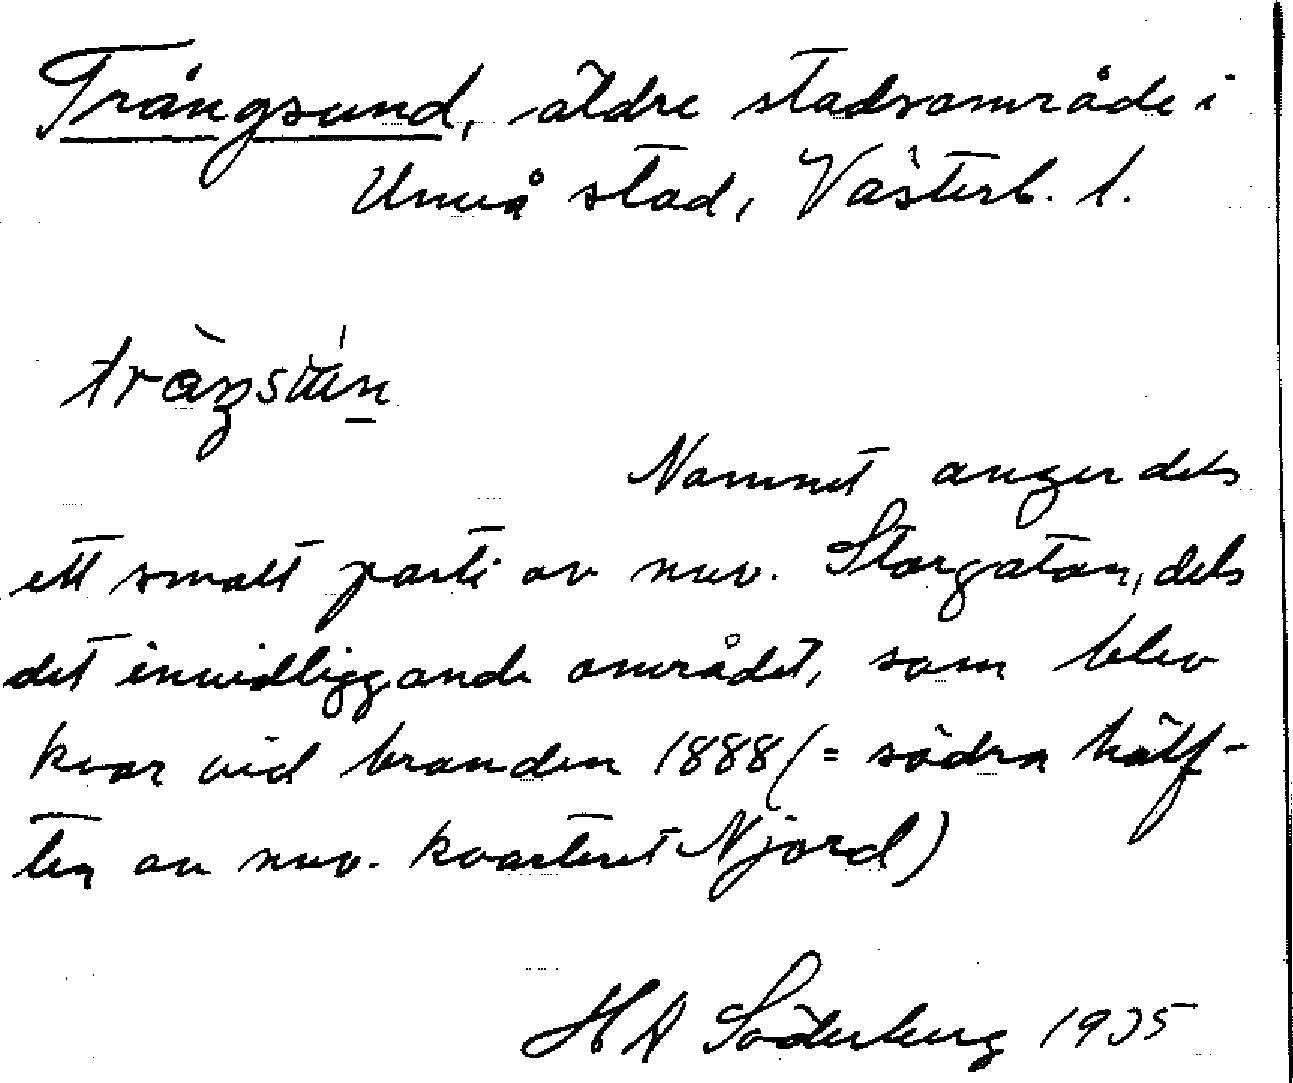 Trångsund, äldre stadsområde i
Umeå stad, Västerb. l.
Namnet anger dels
ett smalt parti av nuv. Storgatan, dels
det invidliggande området, som blev
kvar vid branden 1888 (= södra hälf-
ten av nuv. kvarteret Njord)
H A Söderberg 1935